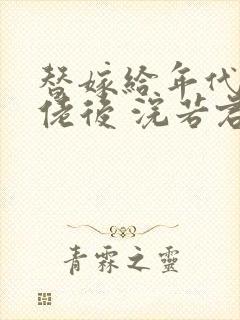 替嫁給年代
佬後 浣若君
青霖之靈